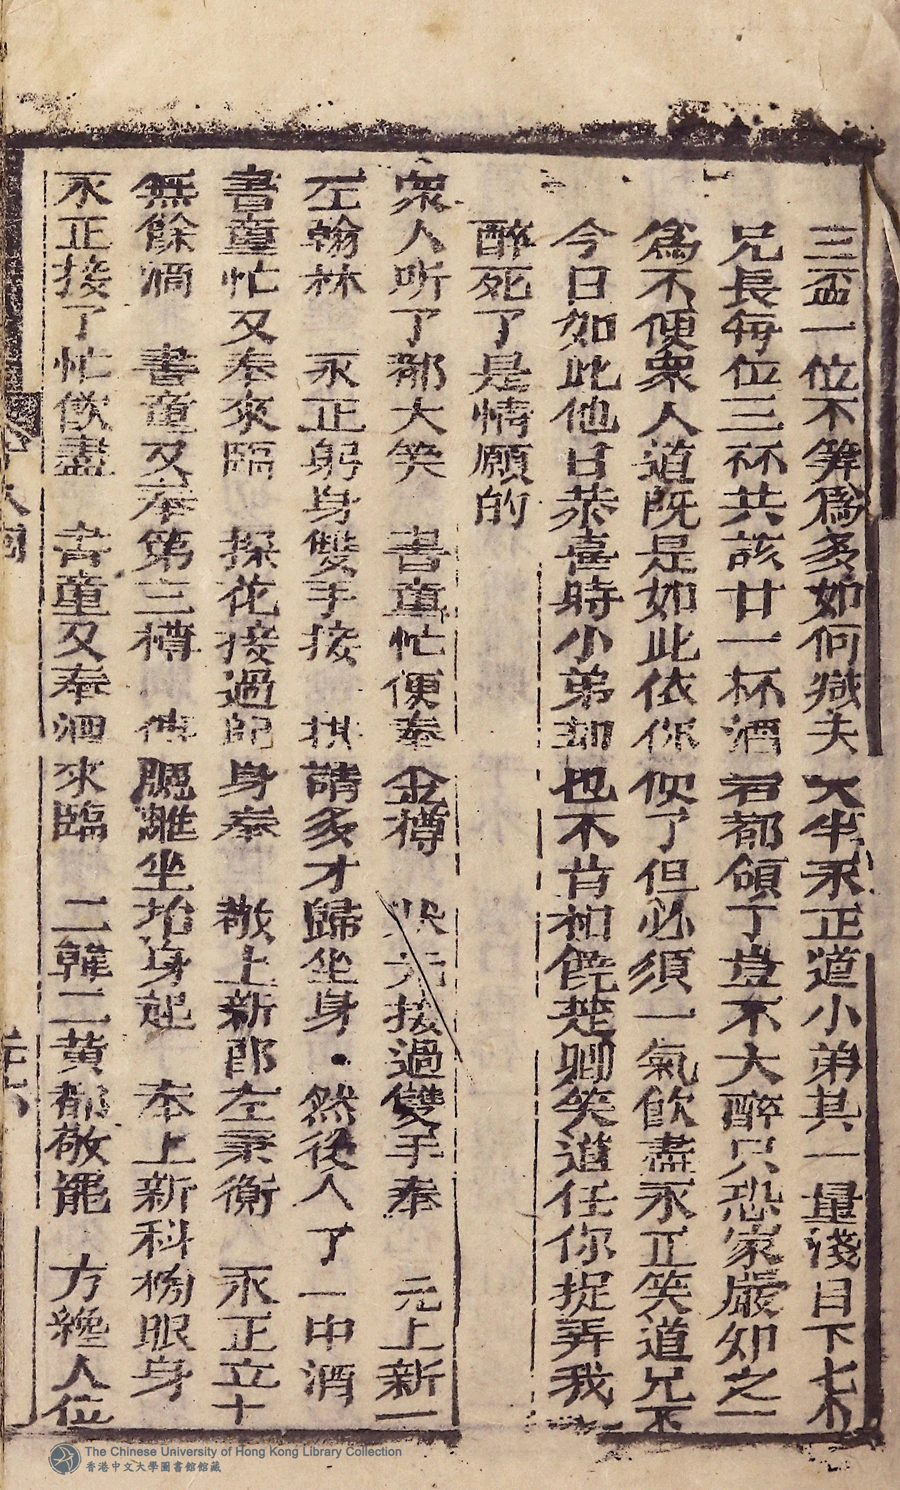 三盃一位不筭爲多如何幾夫大半永正道小弟其一量淺目下七个
兄長每位三杯共該廿一杯酒若都領了豈不大醉只恐家嚴知之一
爲不便衆人道既是如此依你便了但必須一氣飲盡永正笑道兄不
今日如此他日恭喜時小弟却也不肯相饒楚卿笑道任你捉弄我
醉死了是情願的
衆人听了都大笑 書童忙便奉金樽 元接過雙手奉 元上新一
左翰林 永正躬身雙手接 拱請多才歸坐身 然後人了一中酒
書童忙又奉來臨 探花接過躬身奉 敬上新郎左秉衡 永正立十
無餘酒 書童又奉第三樽 傳臚離坐抬身起 奉上新科榜眼身
永正接了忙飲盡 書童又奉酒來臨 二韓二黄都敬罷 方纔人位
The Chinese University of Hong Kong Library Collection
香港中文大學圖書館館藏